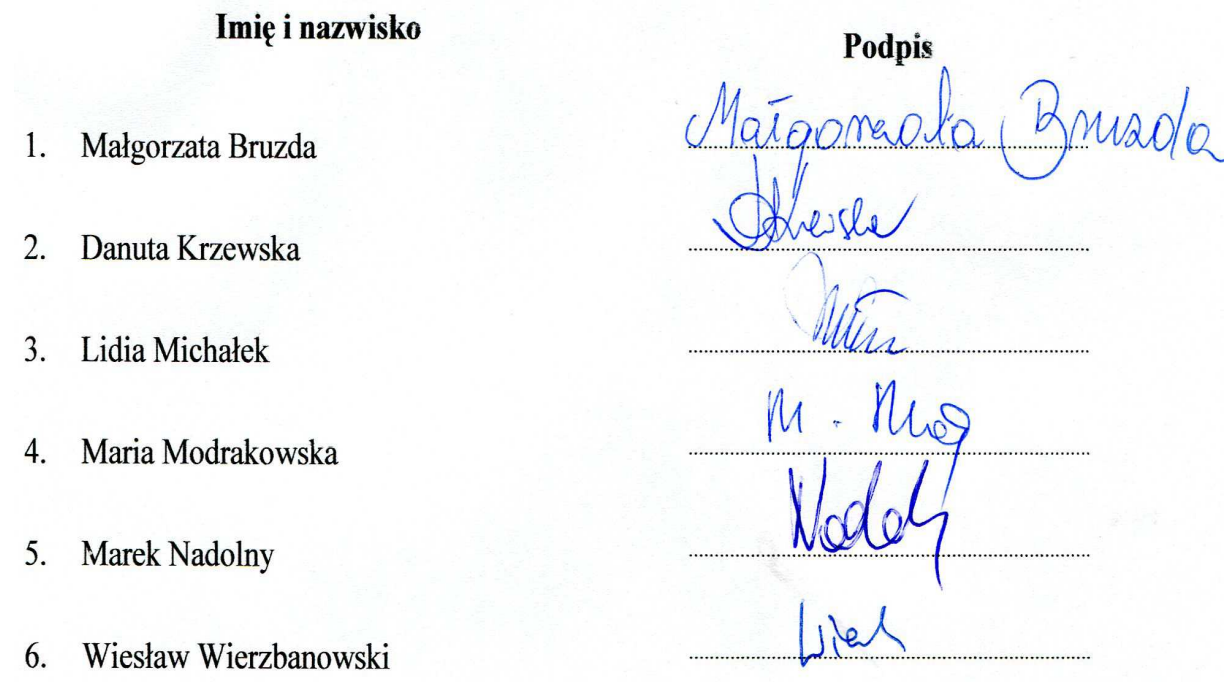 Imię i nazwisko
Podpis
1. Małgorzata Bruzda Małgorzata Bruzda
2. Danuta Krzewska
3. Lidia Michałek
4. Maria Modrakowska
5. Marek Nadolny
6. Wiesław Wierzbanowski